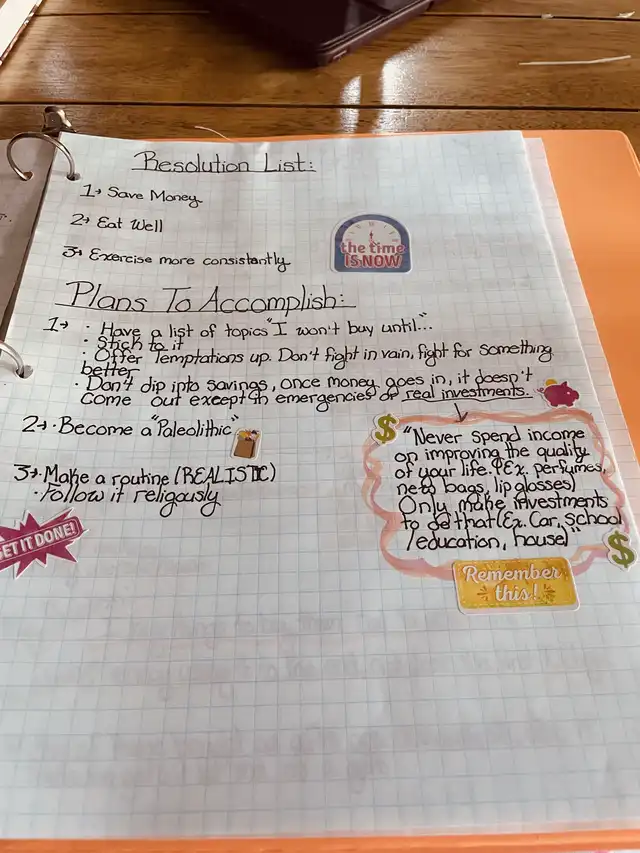 Resolution List:
1→ Save Money
2→ Eat Well
3→ Exercise more consistently
the time
IS NOW
Plans To Accomplish:
1→ · Have a list of topics "I won't buy until..."
· Stick to it
· Offer Temptations up. Don't fight in vain, fight for something
better
· Don't dip into savings, once money goes in, it doesn't
come out except in emergencies or real investments.
2→ · Become a "Paleolithic"
3→ · Make a routine (REALISTIC)
· Follow it religously
GET IT DONE!
$
"Never spend income
on improving the quality
of your life. (Ex. perfumes,
new bags, lip glosses)
Only make investments
to do that (Ex. Car, school
/education, house)"
$
Remember
this!